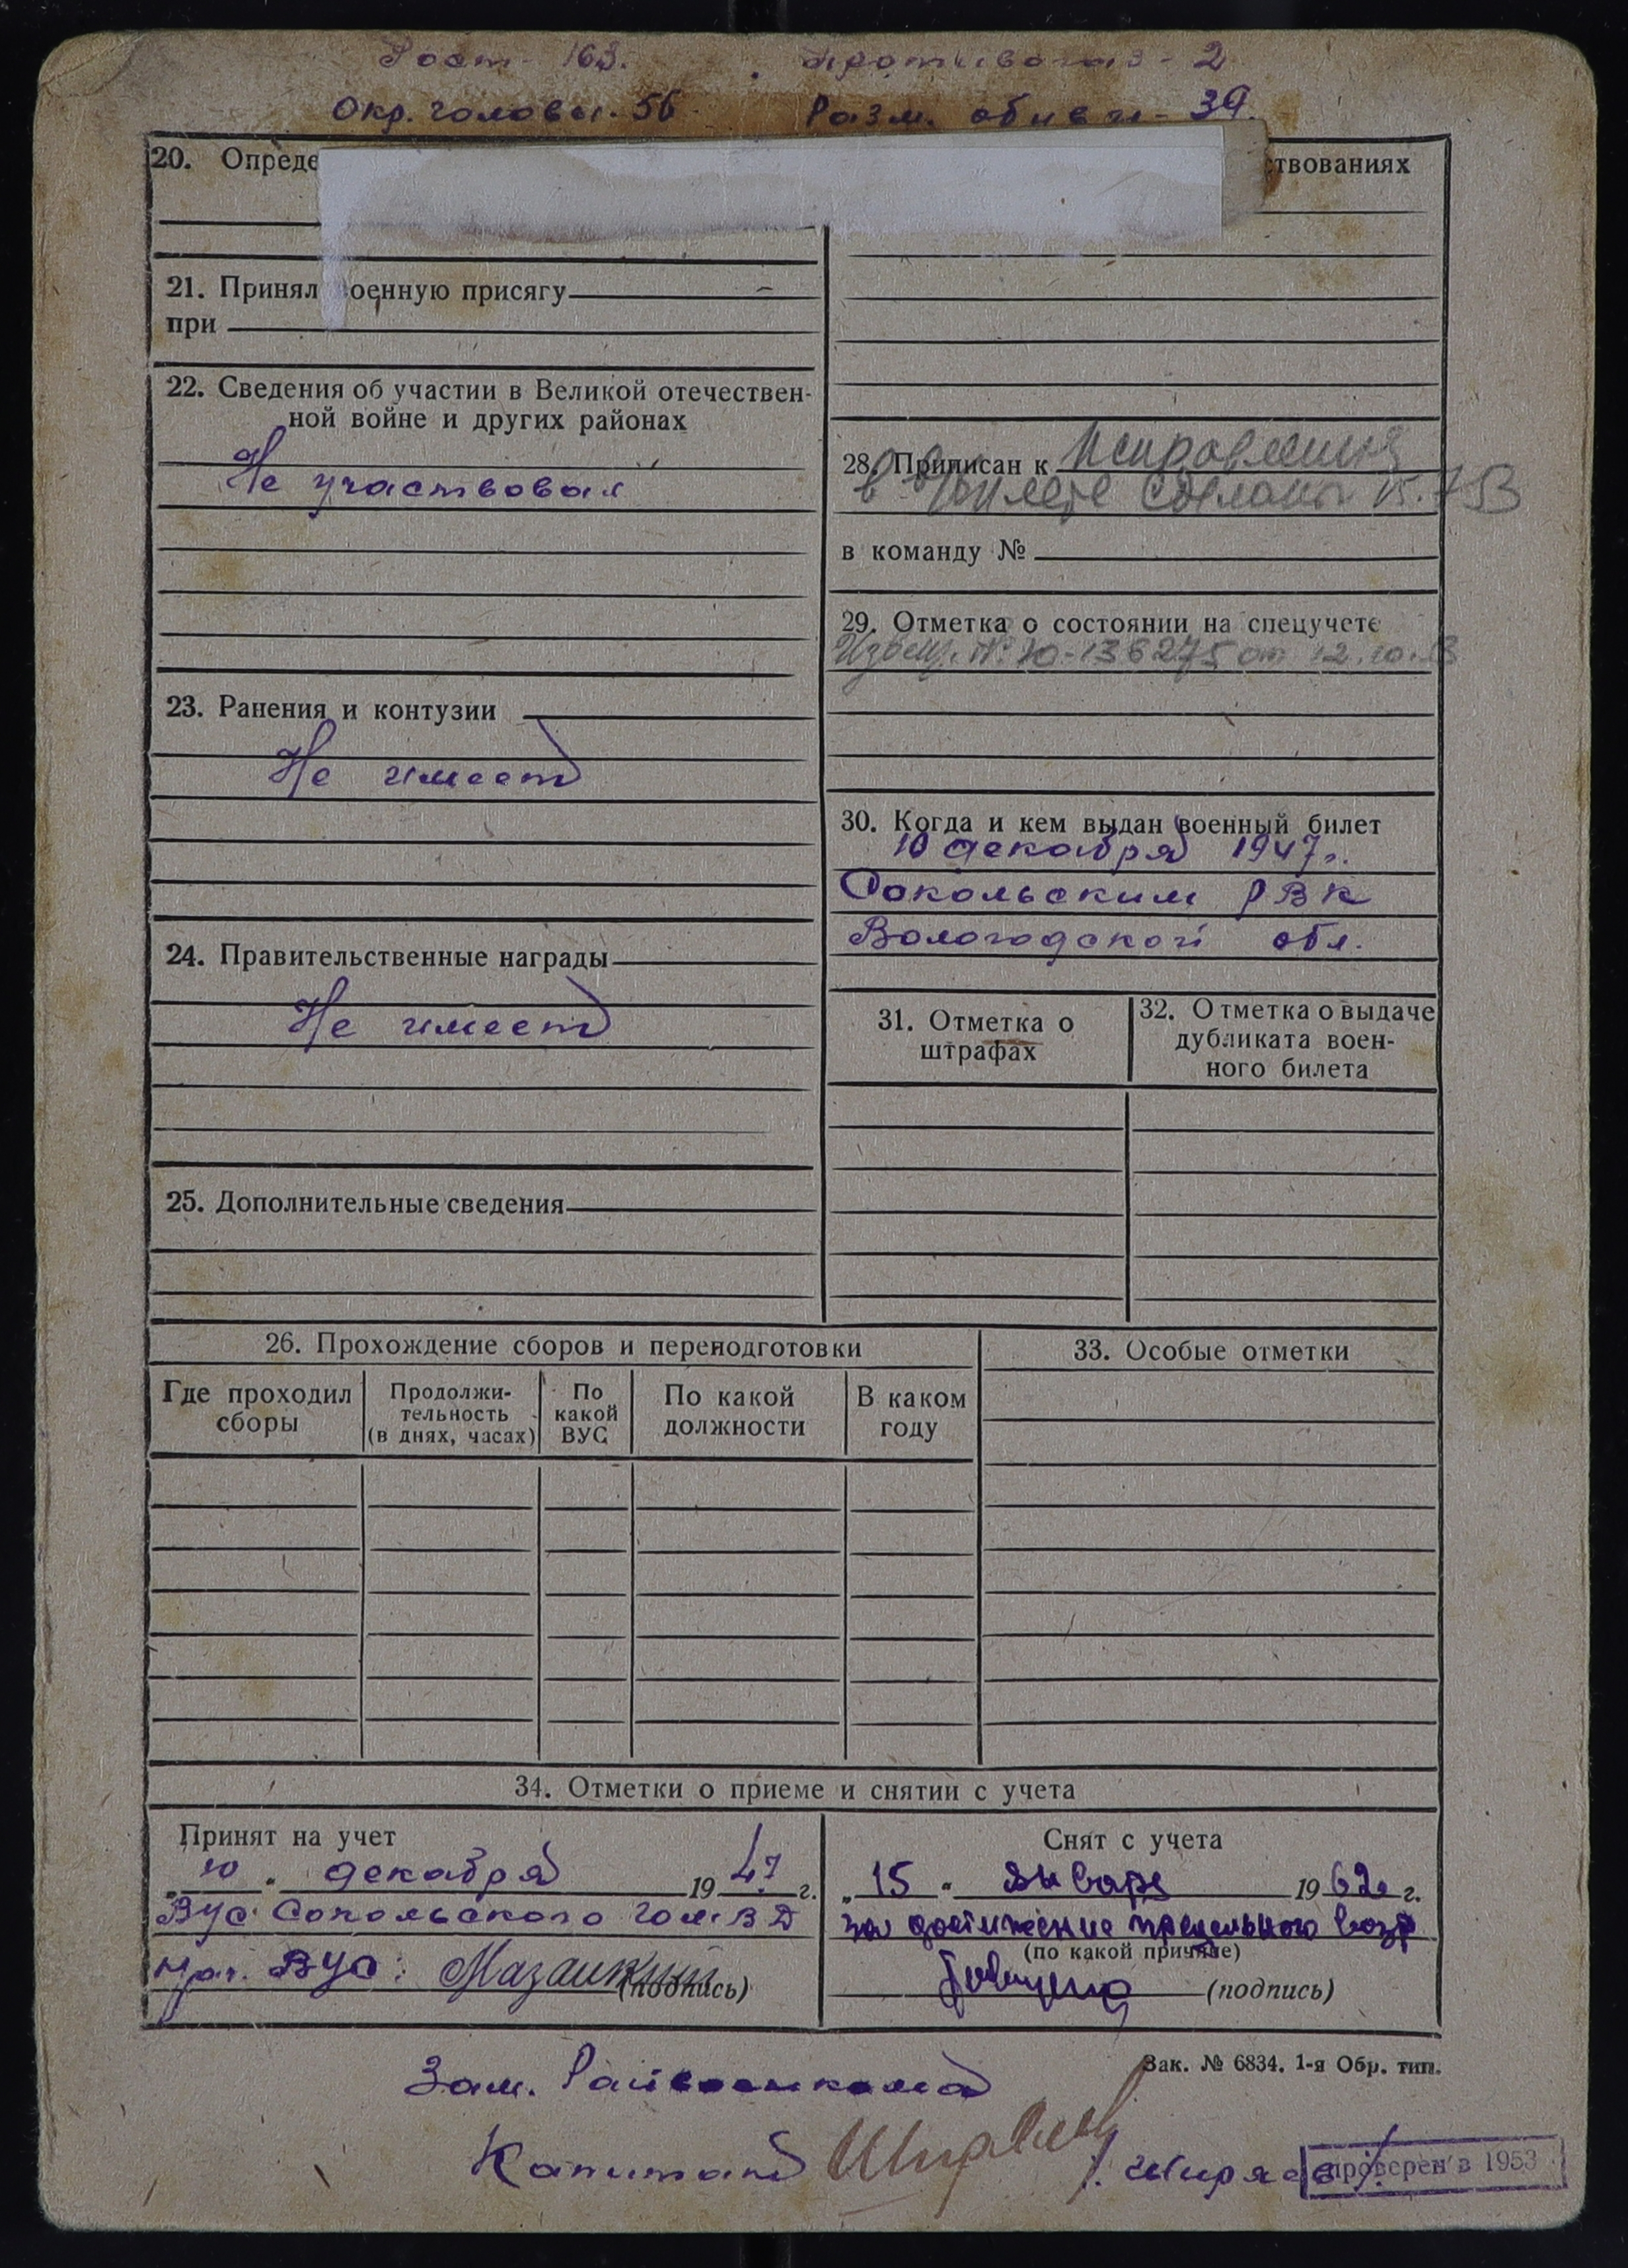 Рост - 163. Противогаз - 2
Окр. головы. 56 Разм. обуви - 39.
20. Опреде
ствованиях
21. Принял военную присягу –
при
22. Сведения об участии в Великой отечествен-
ной войне и других районах
Не участвовал
23. Ранения и контузии
Не имеет
24. Правительственные награды
Не имеет
25. Дополнительные сведения
28. Приписан к Исправления
в билете сделаны
в команду №
29. Отметка о состоянии на спецучете
Извещ. № 10-136275 от 12.10.
30. Когда и кем выдан военный билет
10 декабря 1947 г.
Сокольским РВК
Вологодской обл.
31. Отметка о
штрафах
32. Отметка о выдаче
дубликата воен-
ного билета
26. Прохождение сборов и переподготовки
Где проходил
сборы
Продолжи-
тельность
(в днях, часах)
По
какой
ВУС
По какой
должности
В каком
году
33. Особые отметки
34. Отметки о приеме и снятии с учета
Принят на учет
„10" декабря 1947 г.
ВУС Сокольского ВД
Нач. ВУС:
(подпись)
Снят с учета
„15" января 1962 г.
за достижение предельного возр
(по какой причине)
(подпись)
Зак. № 6834. 1-я Обр. тип.
Зам. Райвоенкома
Капитан /Ширяев/
проверен в 1953